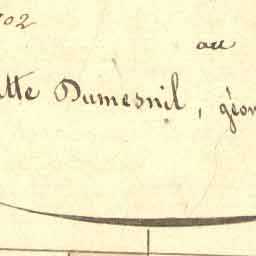 202
au
tte Dumesnil, géom